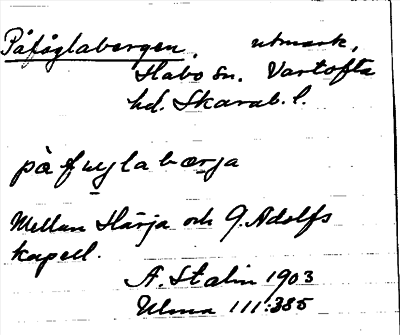 Påfåglabergen, utmark,
Habo sn. Vartofta
hd. Skarab. l.
påfuglabærja
Mellan Härja och G. Adolfs
kapell.
A. Stalin 1903
Ulma 111:385